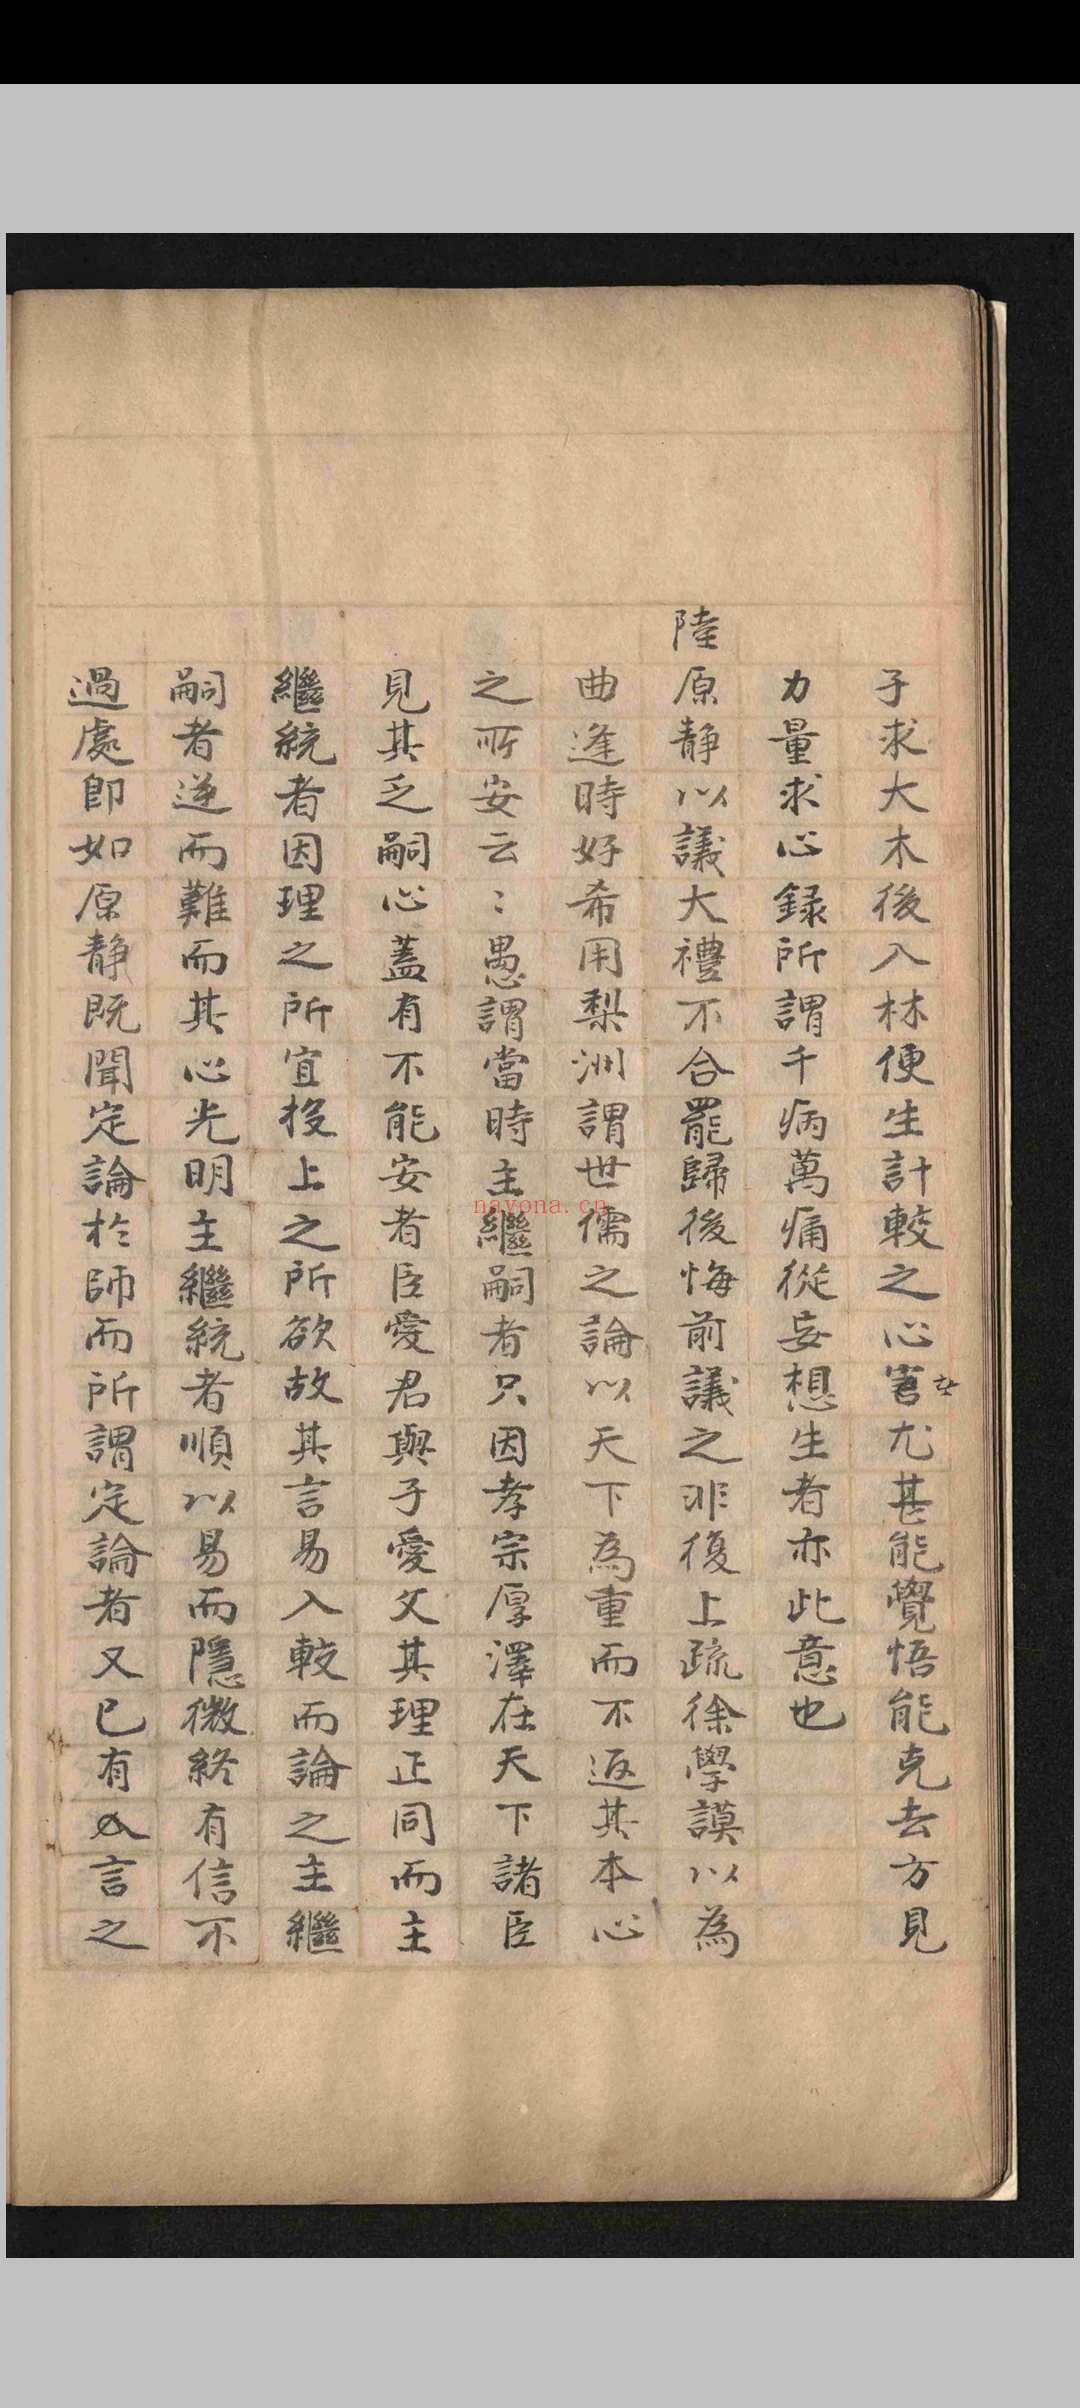 子求大木後入林便生計較之心害尤甚能覺悟能克去方見
力量求心録所謂千病萬痛從妄想生者亦此意也
陸原静以議大禮不合罷歸後悔前議之非復上疏徐學謨以為
曲逢時好希用梨洲謂世儒之論以天下為重而不返其本心
之所安云〻愚謂當時主繼嗣者只因孝宗厚澤在天下諸臣
見其乏嗣心蓋有不能安者臣愛君與子愛父其理正同而主
繼統者因理之所宜投上之所欲故其言易入較而論之主繼
嗣者逆而難而其心光明主繼統者順以易而隱微終有信不
過處即如原静既聞定論於師而所謂定論者又已有人言之
nayona.cn